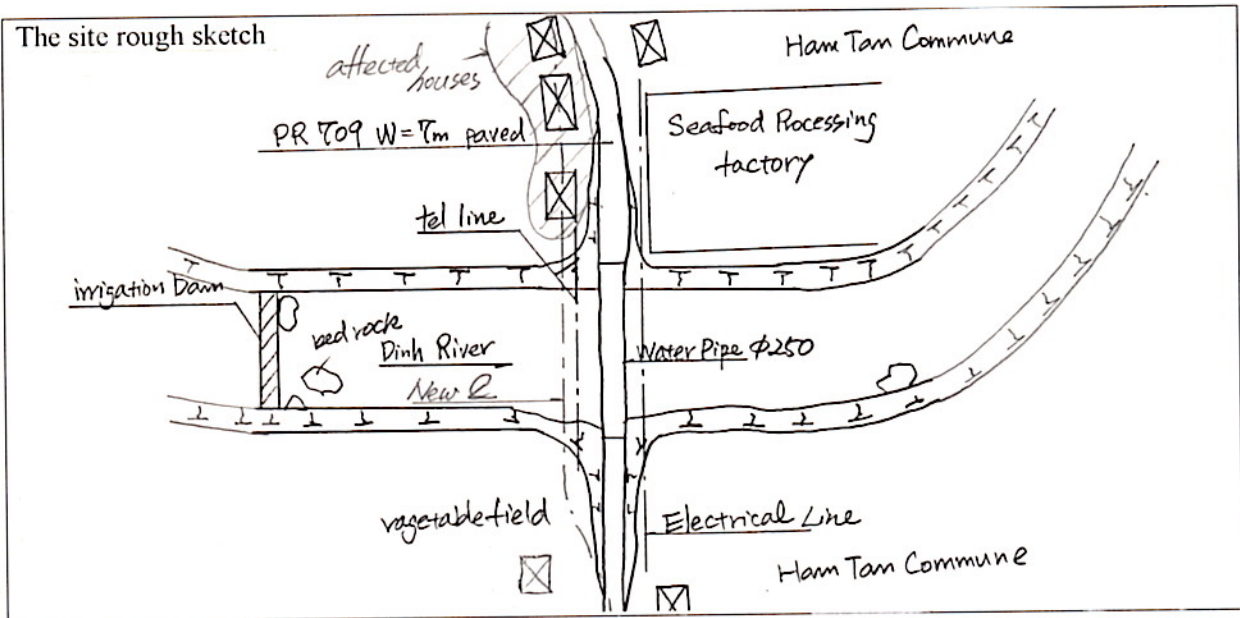 The site rough sketch
Ham Tan Commune
affected
houses
PR 709 W=7m paved
Seafood Processing
factory
tel line
irrigation Dam
bedrock
Dinh River
Water Pipe Φ250
New ℄
vagetable field
Electrical Line
Ham Tan Commune